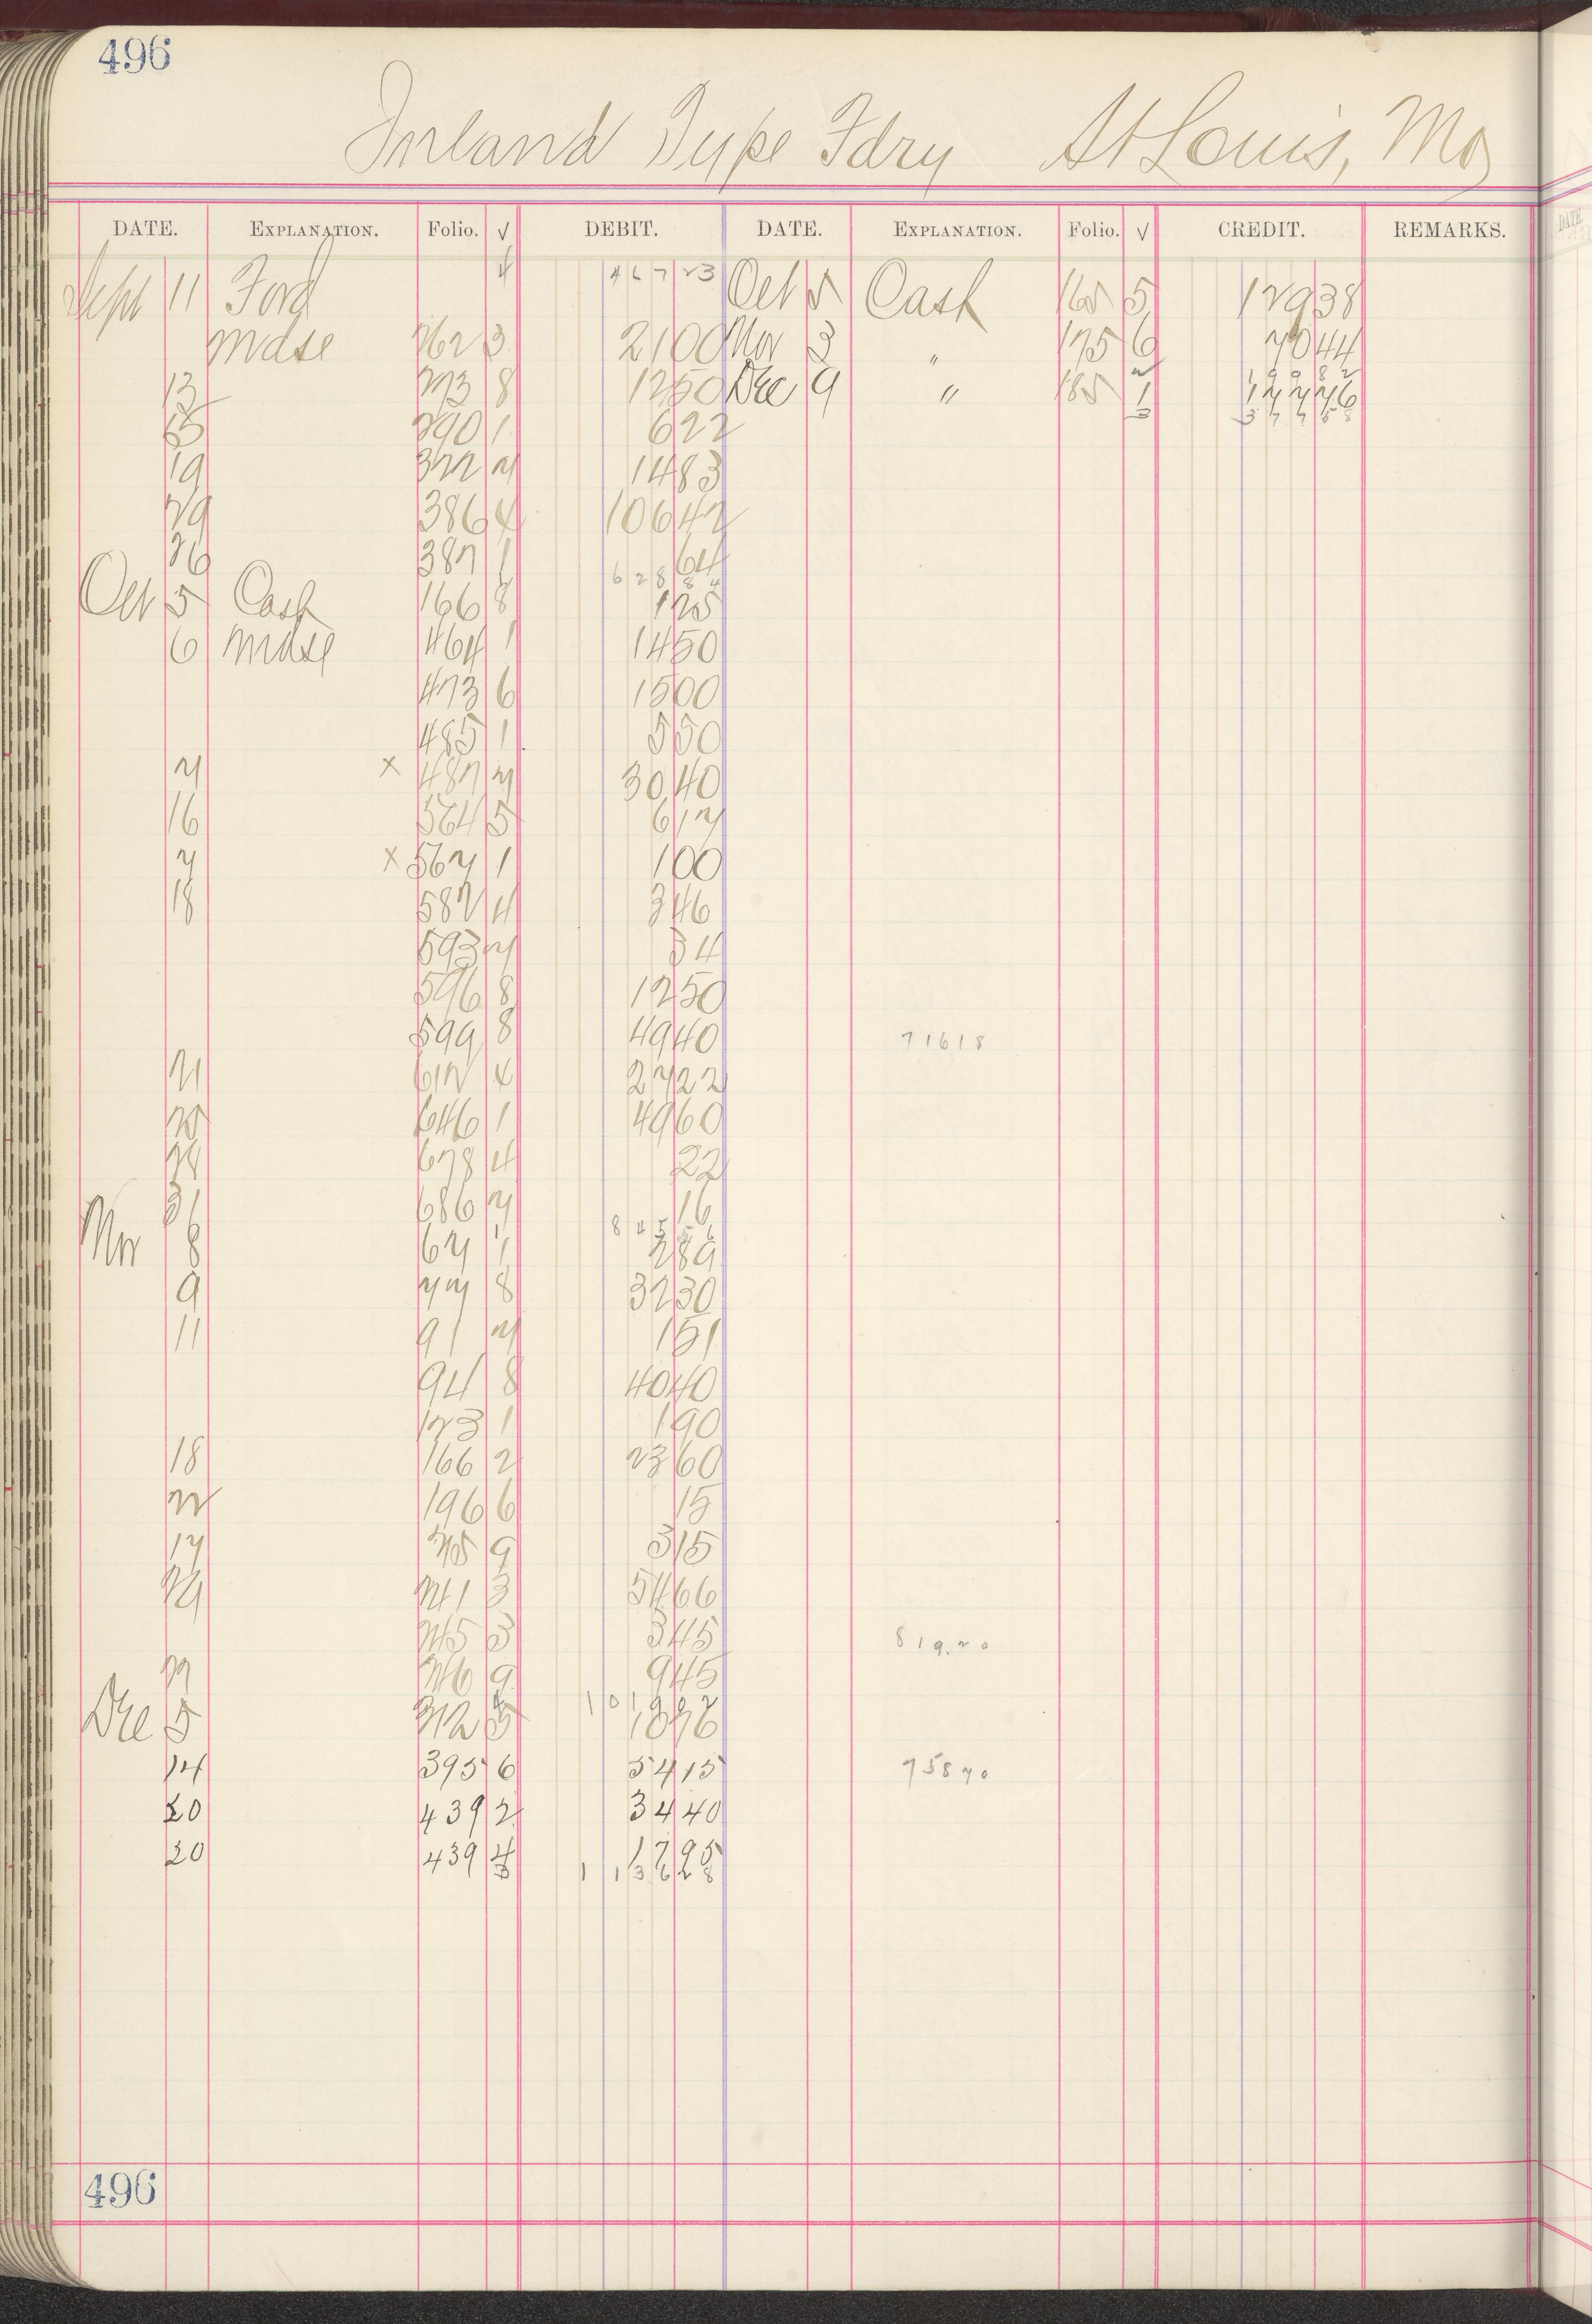 496
Inland Type Fdry St Louis, Mo
DATE. EXPLANATION. Folio. √ DEBIT. DATE. EXPLANATION. Folio. √ CREDIT. REMARKS.
4 467 23
Sept 11 Ford Oct 5 Cash 165 5 129 38
Mdse 262 3 21 00 Nov 3 " 175 6 70 44
199 82
13 273 8 12 50 Dec 9 " 185 1 177 76
3 377 58
15 290 1 6 22
19 322 7 14 83
29 386 4 106 42
26 387 1 64
628 84
Oct 5 Cash 166 8 1 25
6 Mdse 464 1 14 50
473 6 15 00
485 1 5 50
7 x 487 7 30 40
16 564 5 6 17
7 x 567 1 1 00
18 582 4 3 46
593 7 34
596 8 12 50
599 8 49 40 716 18
21 612 4 27 22
25 646 1 49 60
28 678 4 22
31 686 7 16
845 56
Nov 8 67 1 2 89
9 77 8 32 30
11 91 7 1 51
94 8 40 40
123 1 1 90
18 166 2 23 60
22 196 6 15
17 205 9 3 15
29 241 3 54 66
245 3 3 45 819.20
246 9 9 45
1019 02
Dec 5 312 5 10 76
14 395 6 54 15 758 70
20 439 2 34 40
20 439 4 17 95
3 1136 28
496